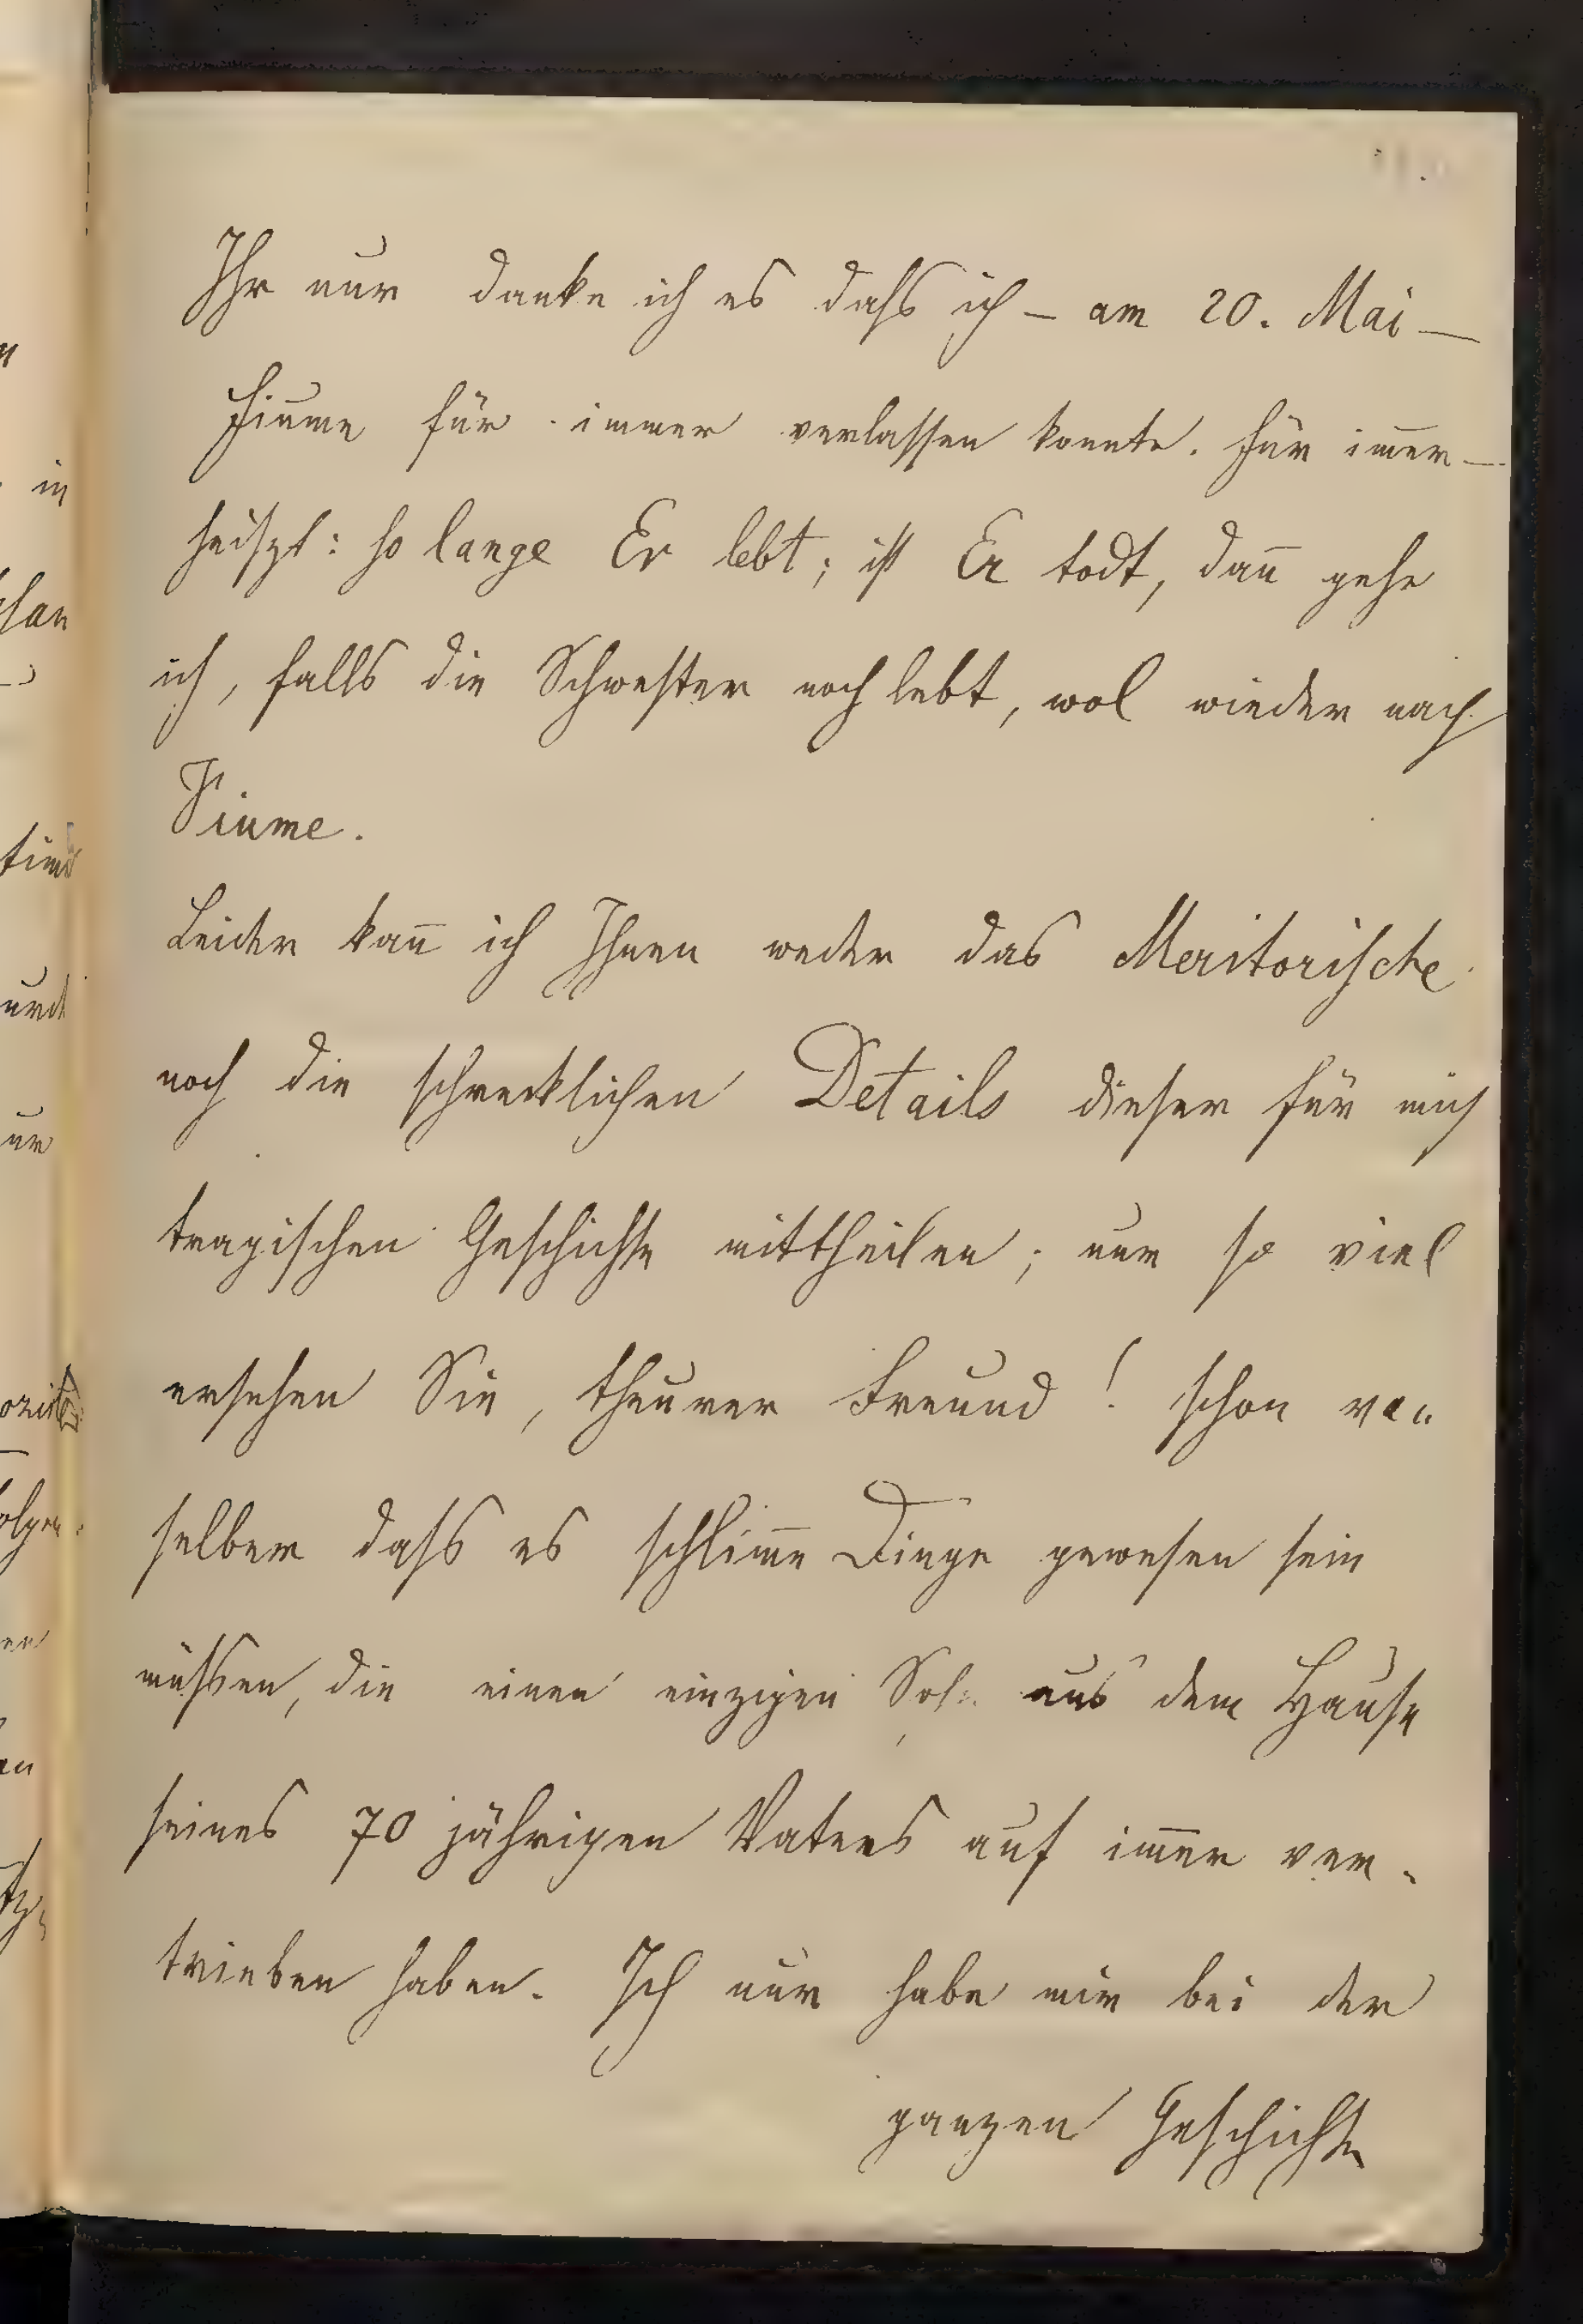 Ihr nur danke ich es dass ich – am 20. Mai –
Fiume für immer verlassen konnte. Für im̅er –
heiszt: so lange Er lebt; ist Er todt, dan̅ gehe
ich, falls die Schwester noch lebt, wol wieder nach
Fiume.
Leider kan̅ ich Ihnen weder das Meritorische
noch die schrecklichen Details dieser für mich
tragischen Geschichte mittheilen; nur so viel
ersehen Sie, theurer Freund! schon von
selber dass es schlim̅e Dinge gewesen sein
müssen, die einen einzigen Sohn aus dem Hause
seines 70 jährigen Vaters auf im̅er ver-
trieben haben. Ich nur habe mir bei der
ganzen Geschichte